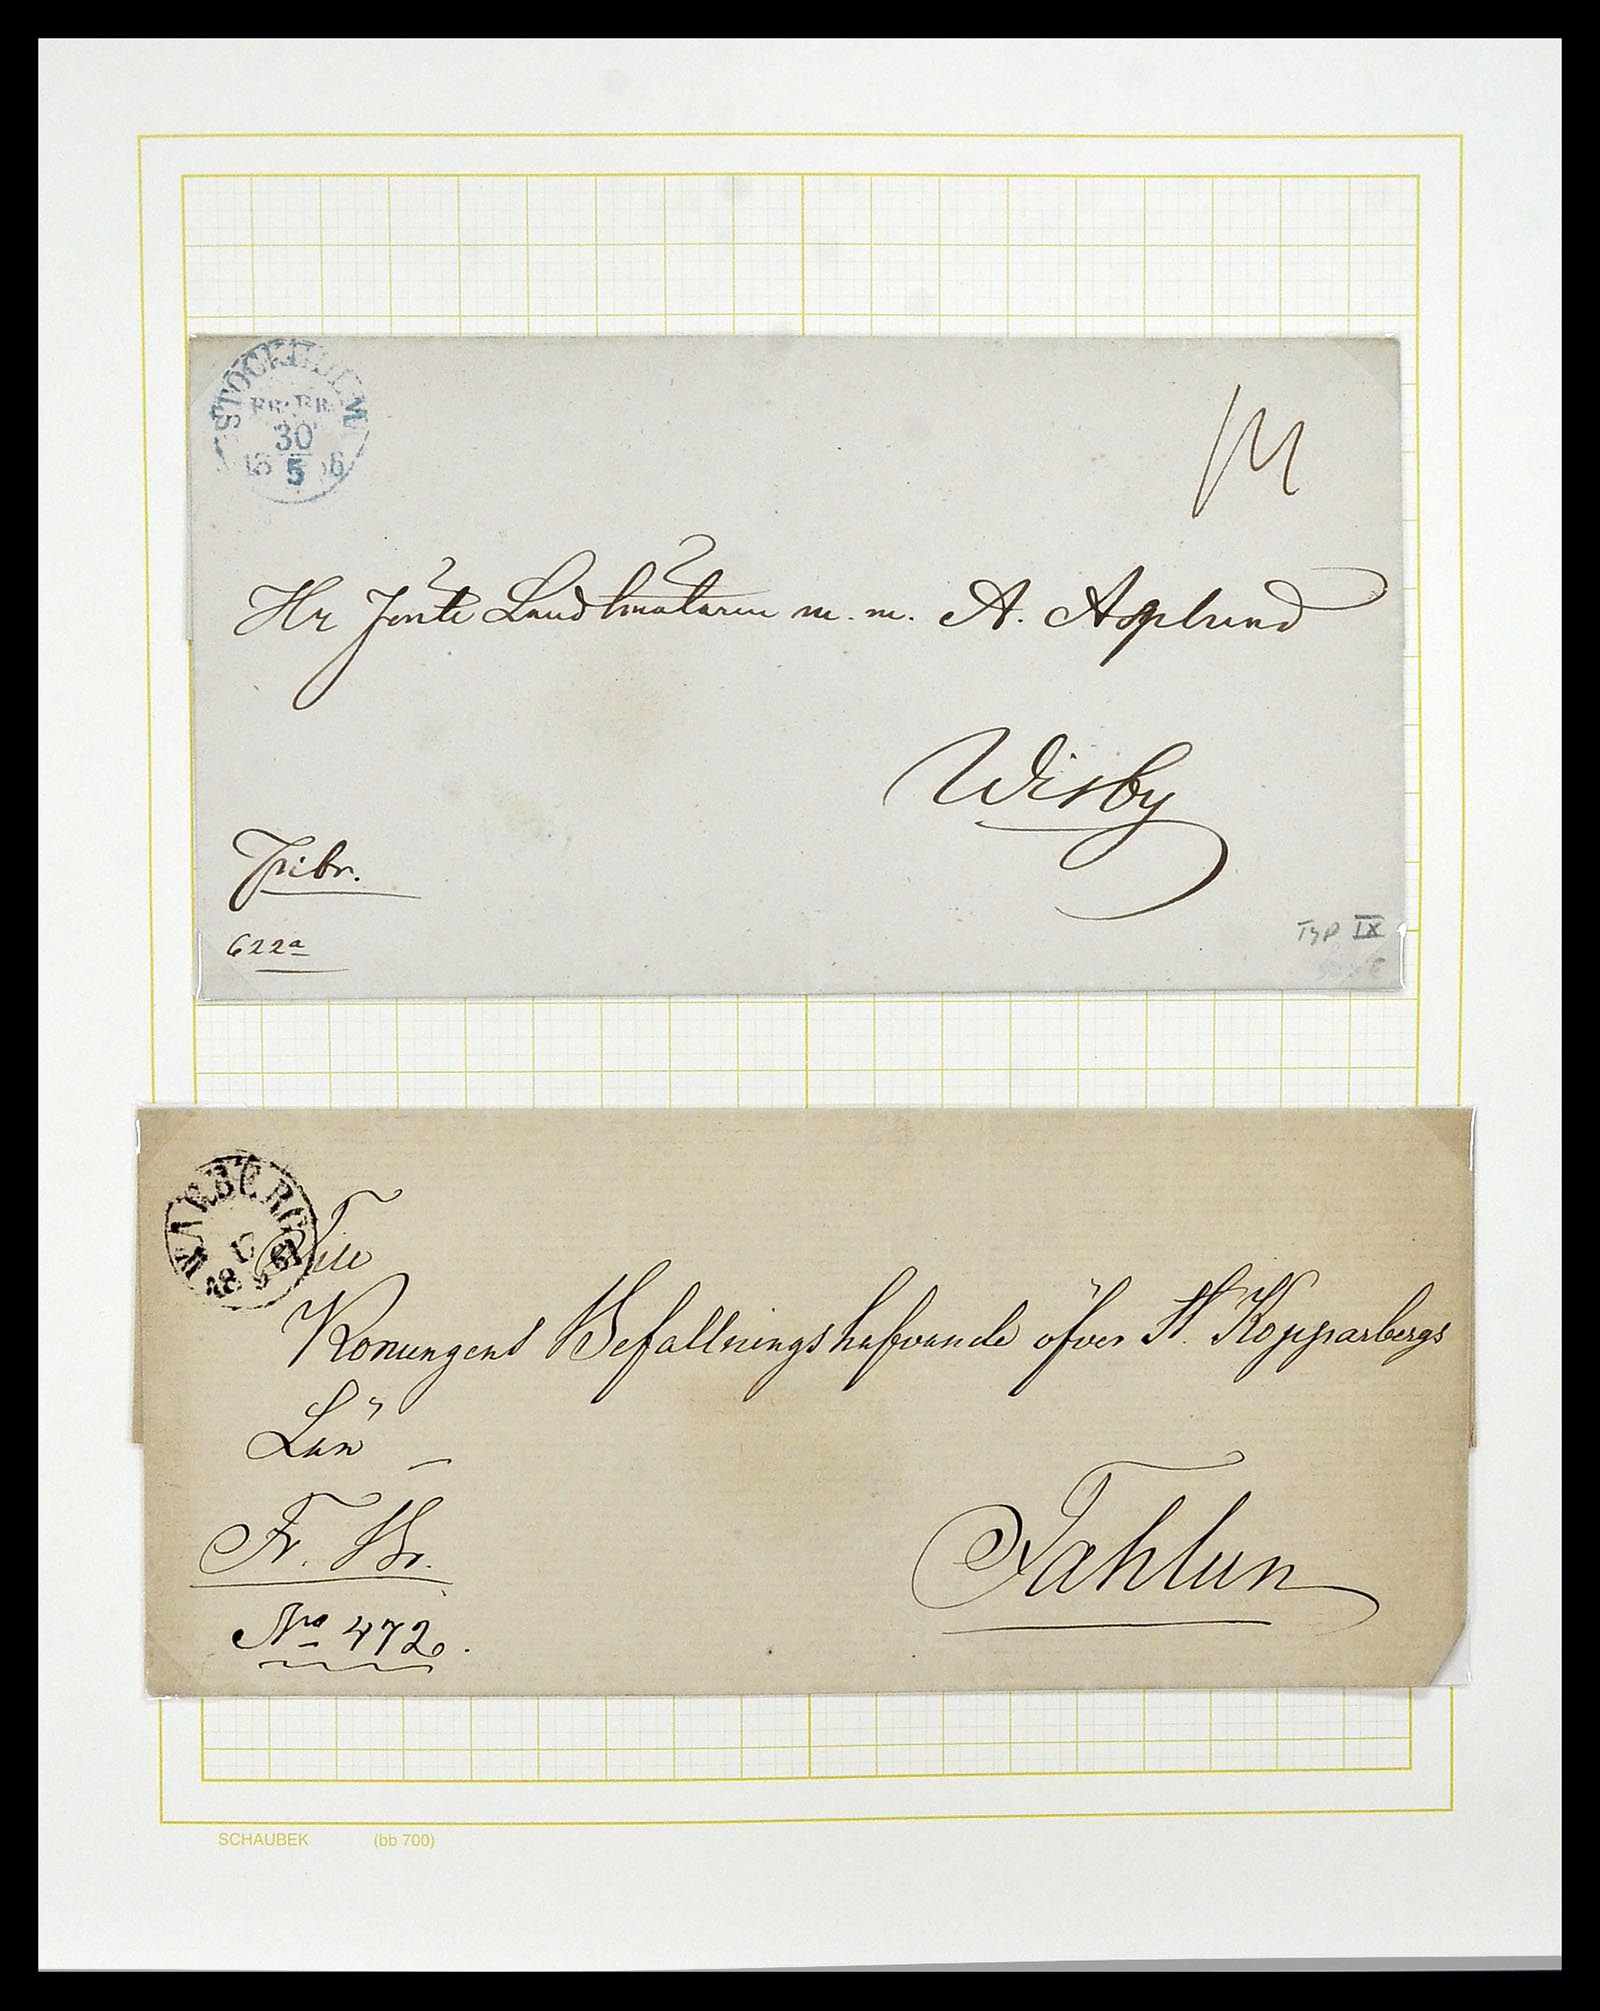 STOCKHOLM
FR: BR.
30
5
Hr Förste Landtmätaren m. m. A. Asplund
Wisby
Fribr.
622a
Typ IX
WARBERG
18
Till
Konungens Befallningshafvande öfver St. Kopparbergs
Län
Fr. Br.
Fahlun
Nro 472.
SCHAUBEK (bb 700)